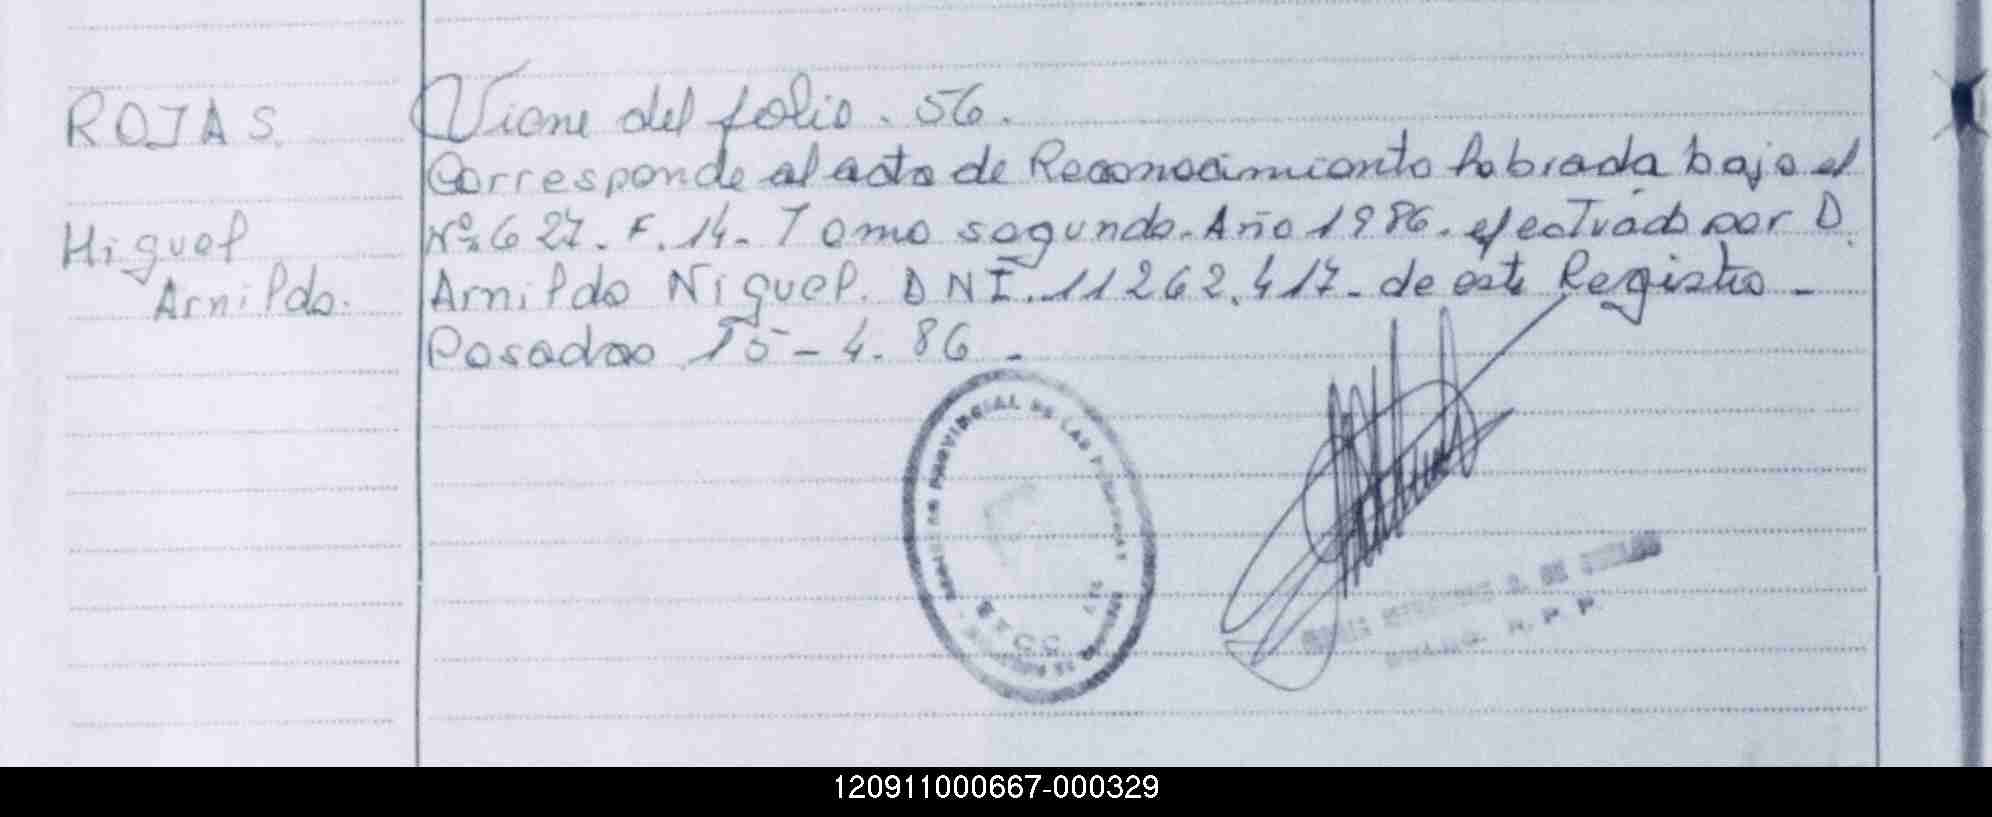 ROJAS.
Miguel
Arnildo.
Viene del folio. 56.
Corresponde al acta de Reconocimiento labrada bajo el
Nº 627. F. 14. Tomo segundo. Año 1986. efectuado por D.
Arnildo Niguel. DNI. 11262.417. de este Registro -
Posadas 15-4.86 -
PROVINCIAL DE LAS PERSONAS
R. P. P.
120911000667-000329